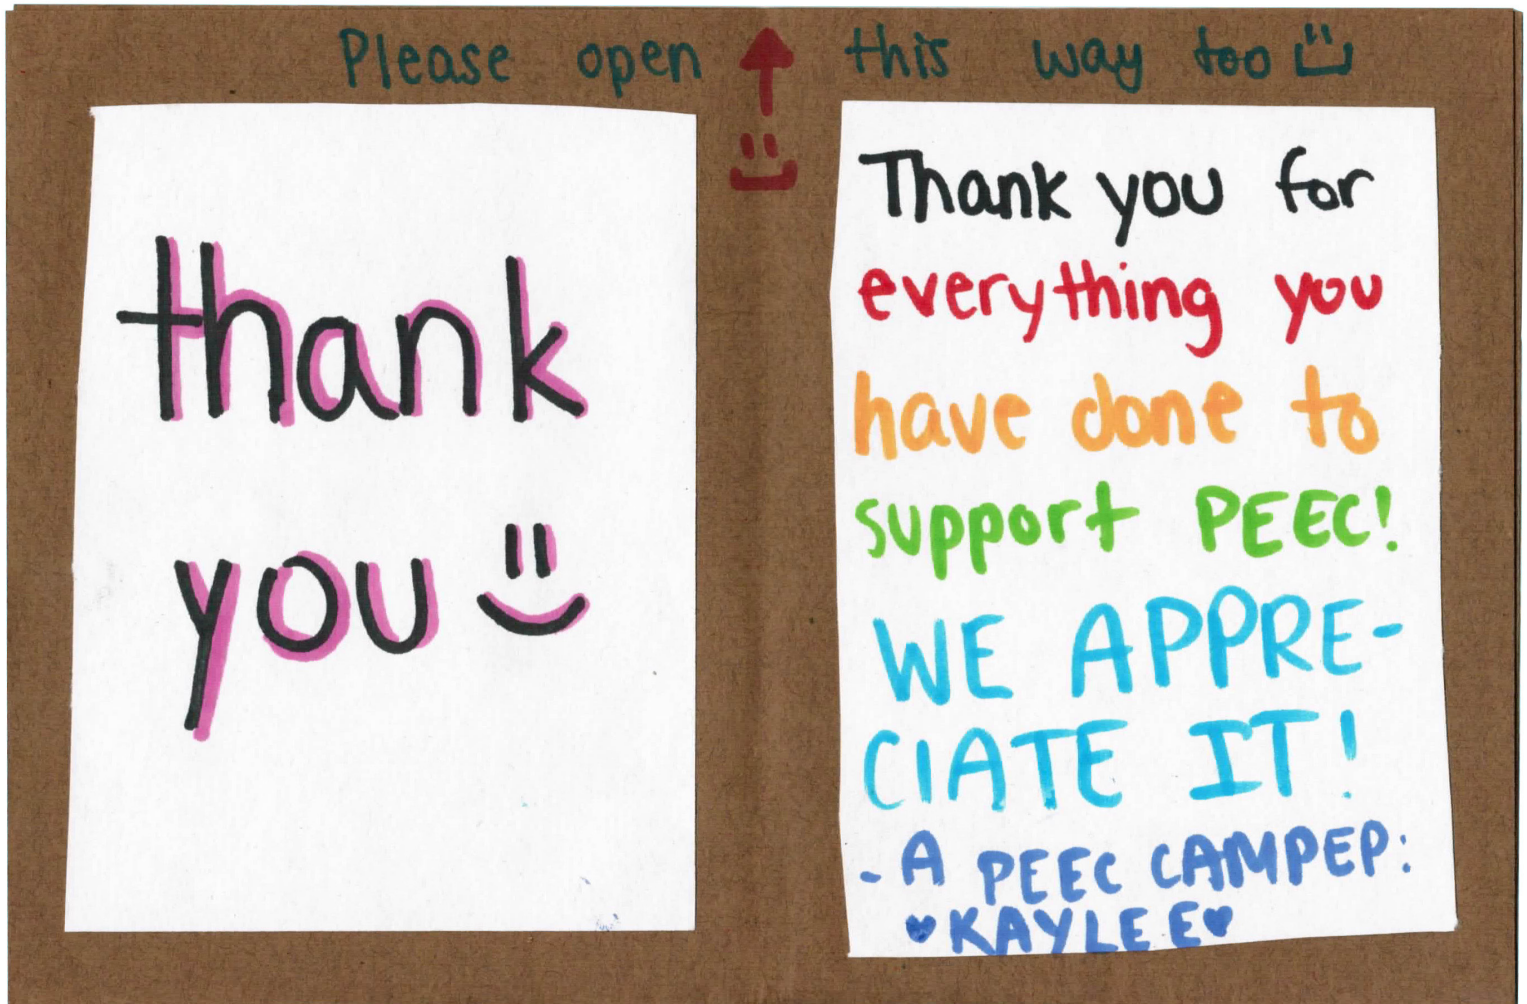 Please open this way too
thank
you
Thank you for
everything you
have done to
support PEEC!
WE APPRE-
CIATE IT!
- A PEEC CAMPEP:
♥KAYLEE♥